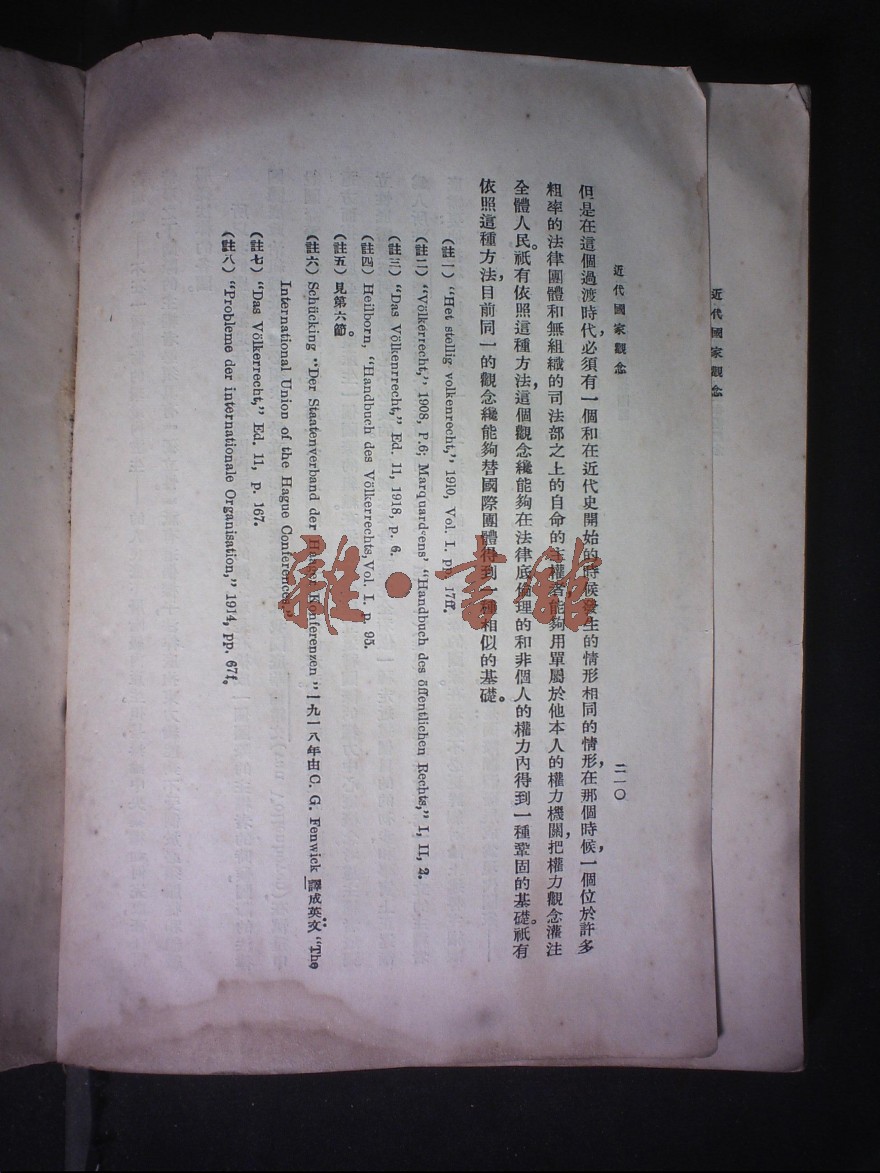 近代國家觀念
二一〇
但是在這個過渡時代,必須有一個和在近代史開始的時候發生的情形相同的情形,在那個時候,一個位於許多
粗率的法律團體和無組織的司法部之上的自命的主權者能夠用單屬於他本人的權力機關,把權力觀念灌注
全體人民。祇有依照這種方法,這個觀念纔能夠在法律底倫理的和非個人的權力內得到一種鞏固的基礎。祇有
依照這種方法,目前同一的觀念纔能夠替國際團體得到一種相似的基礎。
(註一) “Het stellig volkenrecht,” 1910, Vol. I. pp. 17ff.
(註二) “Völkerrecht,” 1908, P.6; Marquardsens' “Handbuch des öffentlichen Rechts,” I, II, 2.
(註三) “Das Völkenrrecht,” Ed. 11, 1918, p. 6.
(註四) Heilborn, “Handbuch des Völkerrechts, Vol. I. p. 95.
(註五) 見第六節。
(註六) Schücking “Der Staatenverband der Haager Konferenzen” 一九一八年由 C. G. Fenwick 譯成英文 “The
International Union of the Hague Conferences.”
(註七) “Das Völkerrecht,” Ed. 11, p. 167.
(註八) “Probleme der internationale Organisation,” 1914, pp. 67f.
近代國家觀念
雜·書館